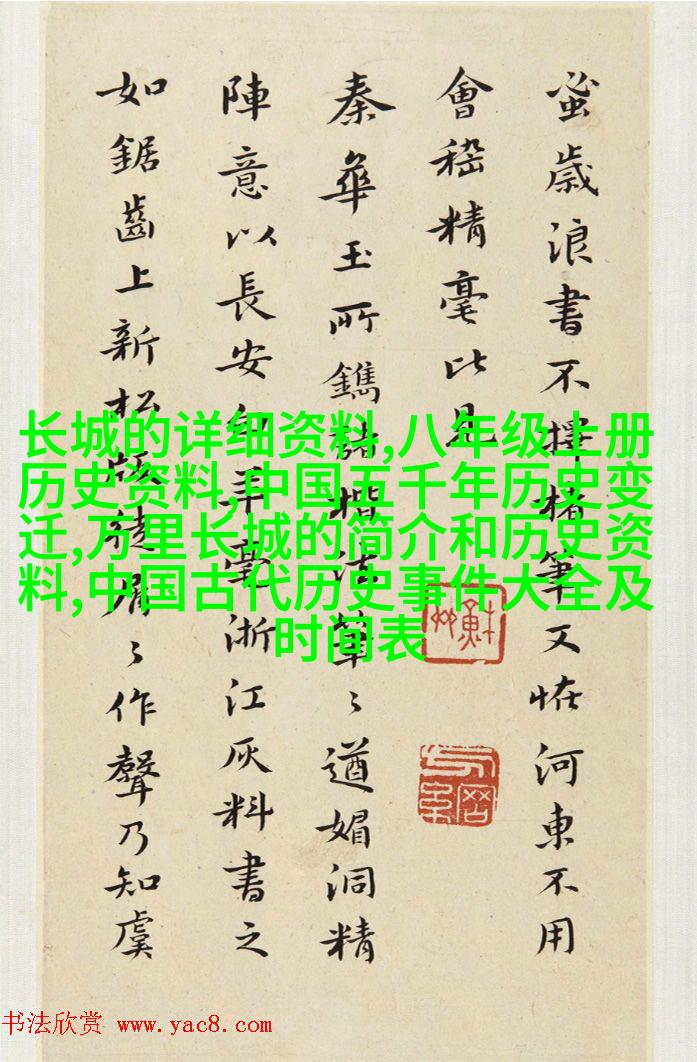 蚤歲浪書不擇楮筆又恠河東不用
會稽精毫此見
秦華玉所鐫諸楷法〻遒媚洞精
陣意以長安幼羊毫浙江灰料書之
如鋸齒上新松版徒屑〻作聲乃知虞
长城的详细资料,八年级上册
历史资料,中国五千年历史变
迁,万里长城的简介和历史资
料,中国古代历史事件大全及
时间表
书法欣赏 www.yac8.com